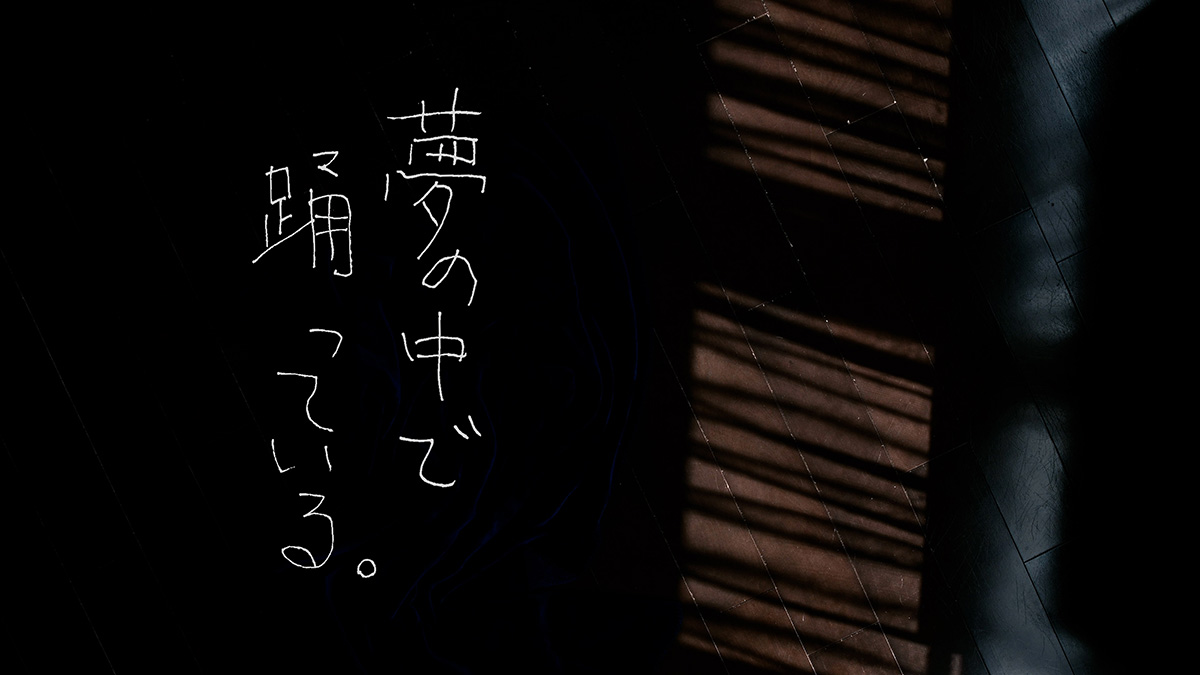 夢の中で
踊っている。